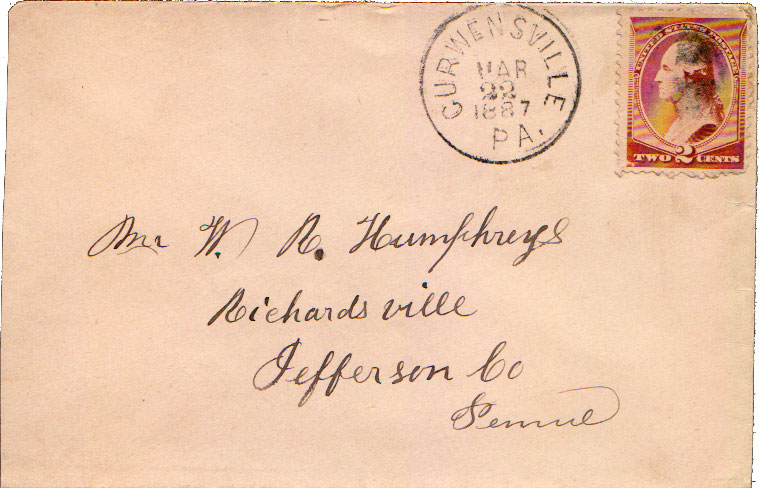 CURWENSVILLE
MAR
22
1887
PA.
UNITED STATES POSTAGE
TWO 2 CENTS
Mr W. R. Humphreys
Richardsville
Jefferson Co
Penna